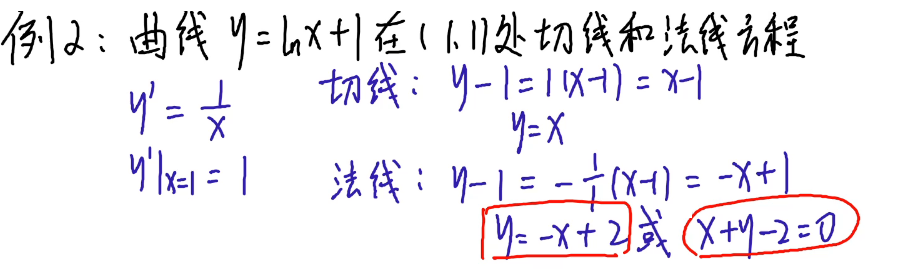 例2：曲线 y=lnx+1 在(1,1)处切线和法线方程
y'=1/x
y'|x=1 = 1
切线：y-1=1(x-1)=x-1
y=x
法线：y-1=-1/1(x-1)=-x+1
y=-x+2 或 x+y-2=0